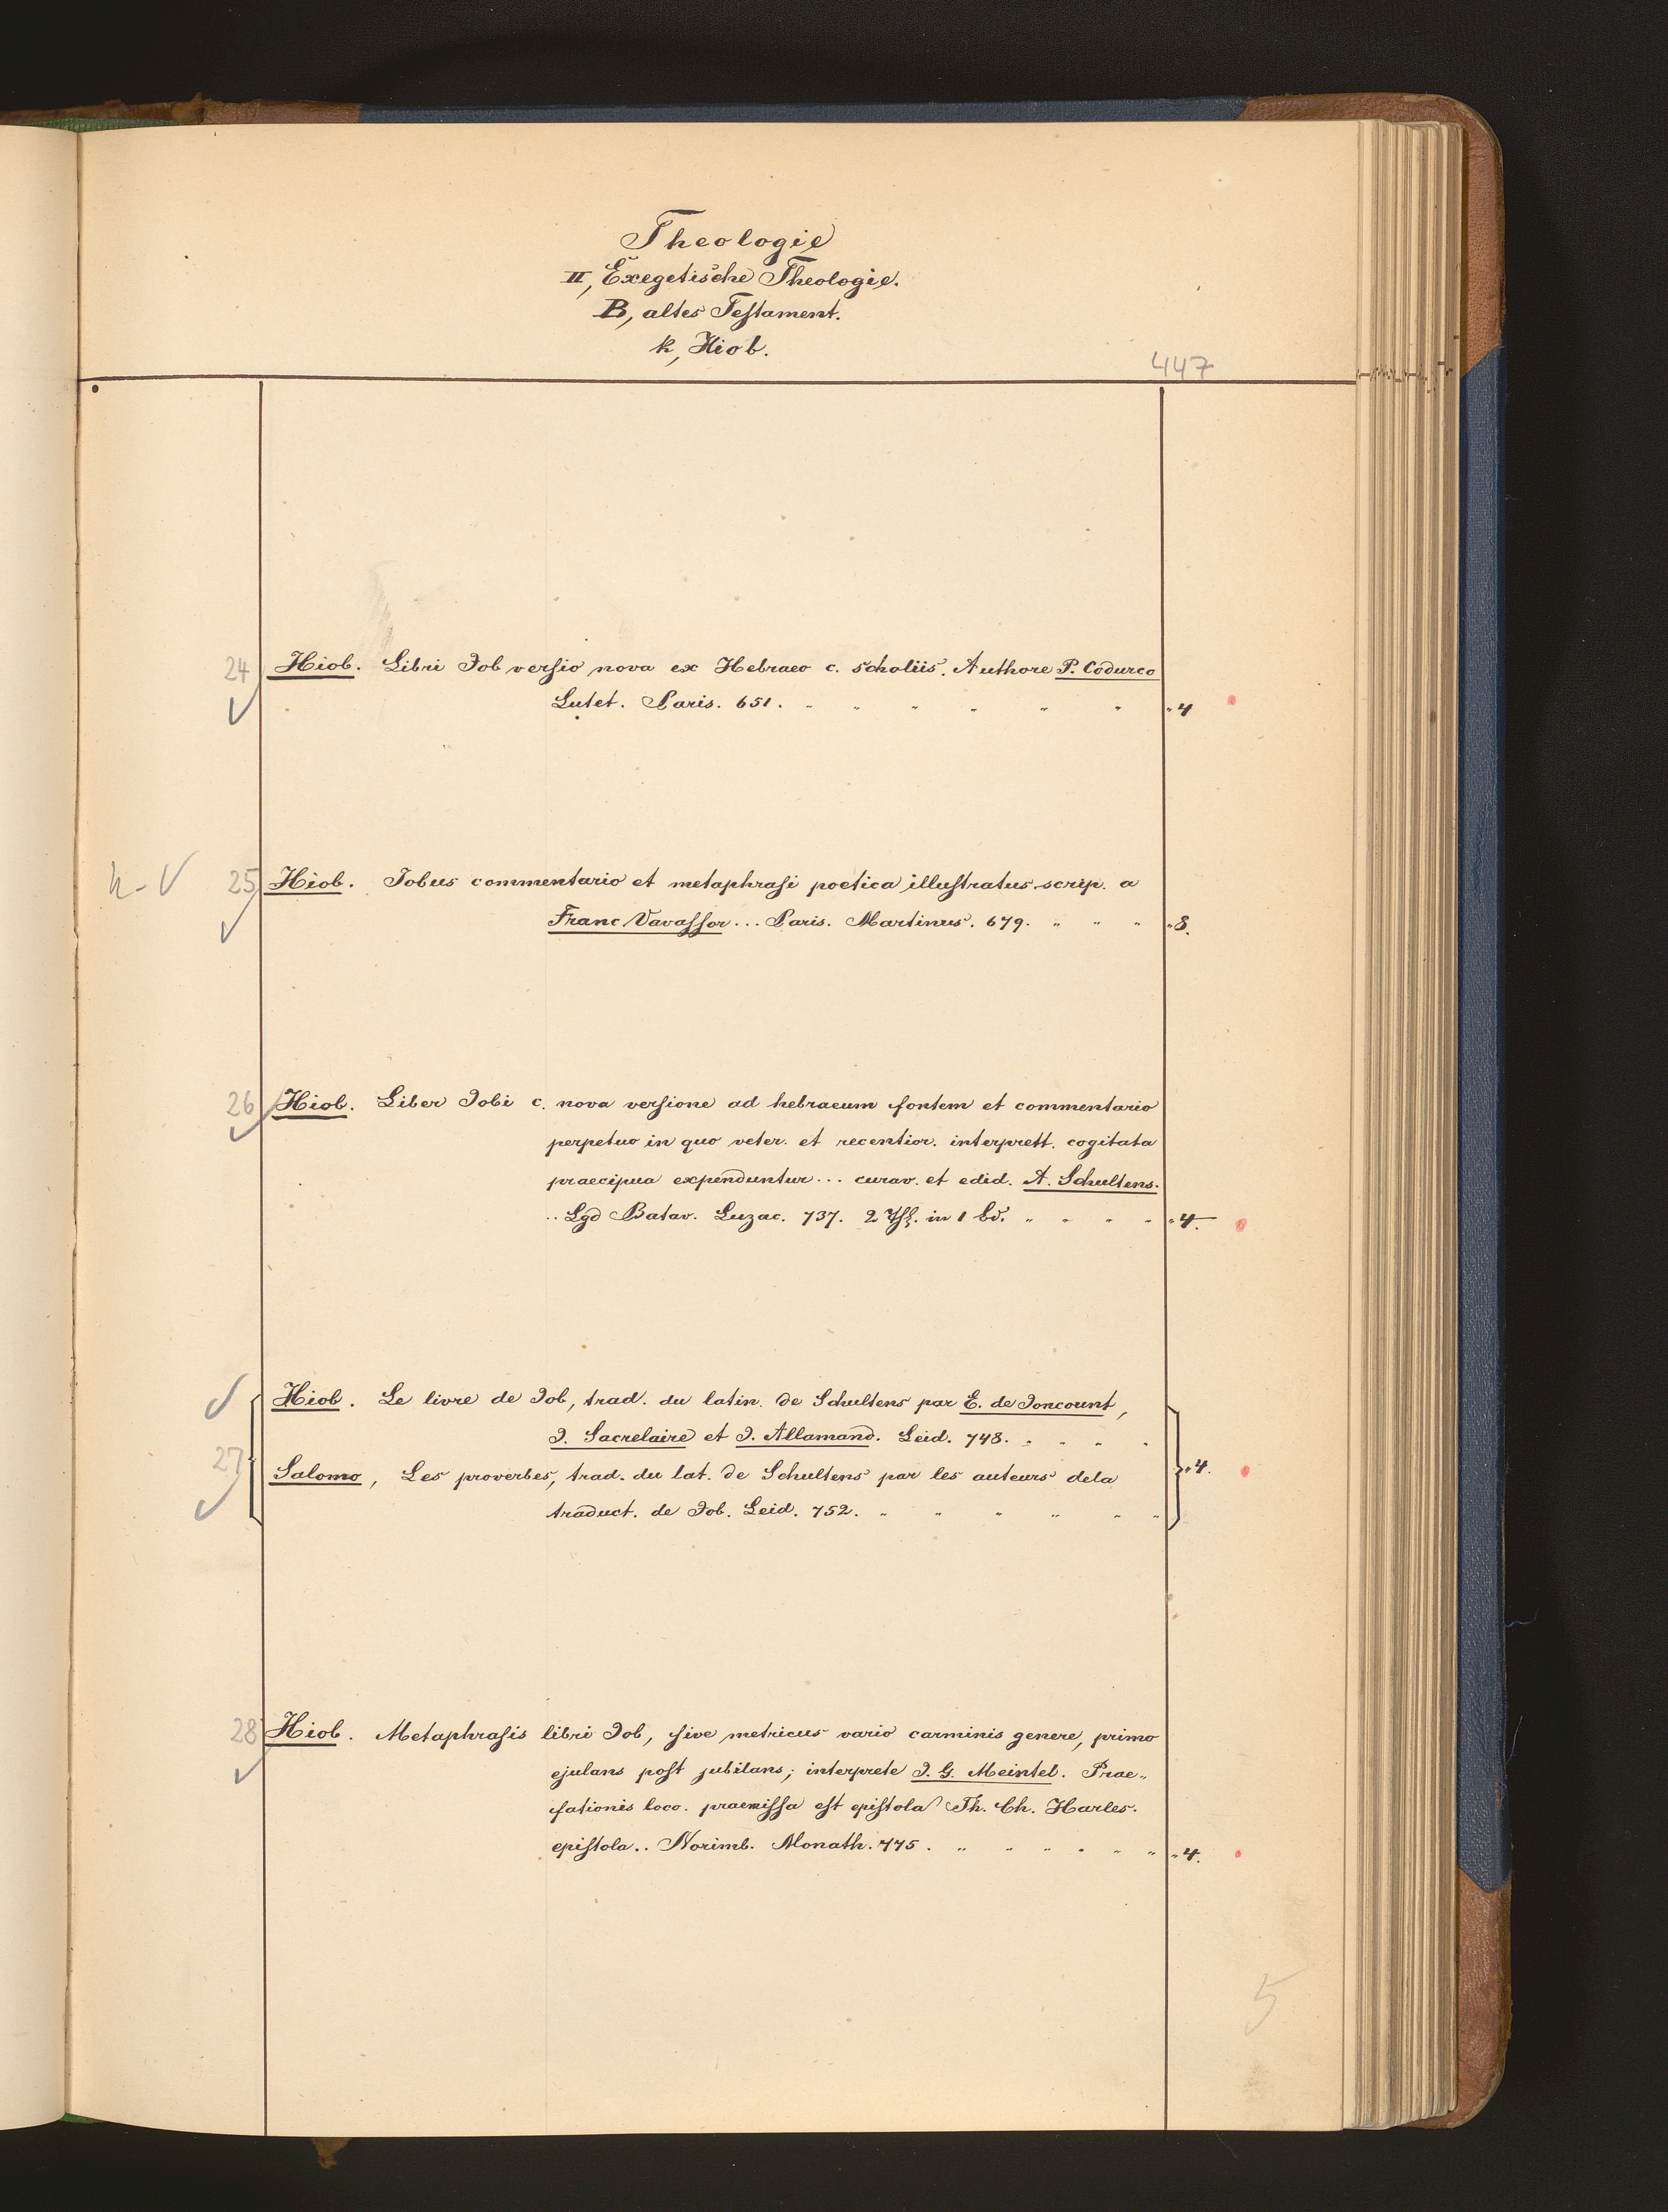 Theologie
II, Exegetische Theologie.
B, altes Testament.
k, Hiob.
447
24 Hiob. Libri Job versio nova ex Hebraeo c. scholiis. Authore P. Codurco
Lutet. Paris. 651. " " " " " " "4
h-V 25 Hiob. Jobus commentario et metaphrasi poetica illustratus scrip. a
Franc Vavassor... Paris. Martinus. 679. " " " "8.
26 Hiob. Liber Jobi c. nova versione ad hebraeum fontem et commentario
perpetuo in quo veter. et recentior. interprett. cogitata
praecipua expenduntur... curav. et edid. A. Schultens.
.. Lgd Batav. Luzac. 737. 2 in 1 bd. " " " " "4.
Hiob. Le livre de Job, trad. du latin. de Schultens par E. de Joncount,
J. Sacrelaire et J. Allamand. Leid. 748. " " " "
27 "4.
Salomo, Les proverbes, trad. du lat. de Schultens par les auteurs dela
traduct. de Job. Leid. 752. " " " " " "
28 Hiob. Metaphrasis libri Job, sive metricus vario carminis genere, primo
ejulans post jubilans; interprete J. G. Meintel. Prae„
fationis loco. praemissa est epistola Th. Ch. Harles.
epistola.. Norimb. Monath. 775. " " " " " " "4.
5